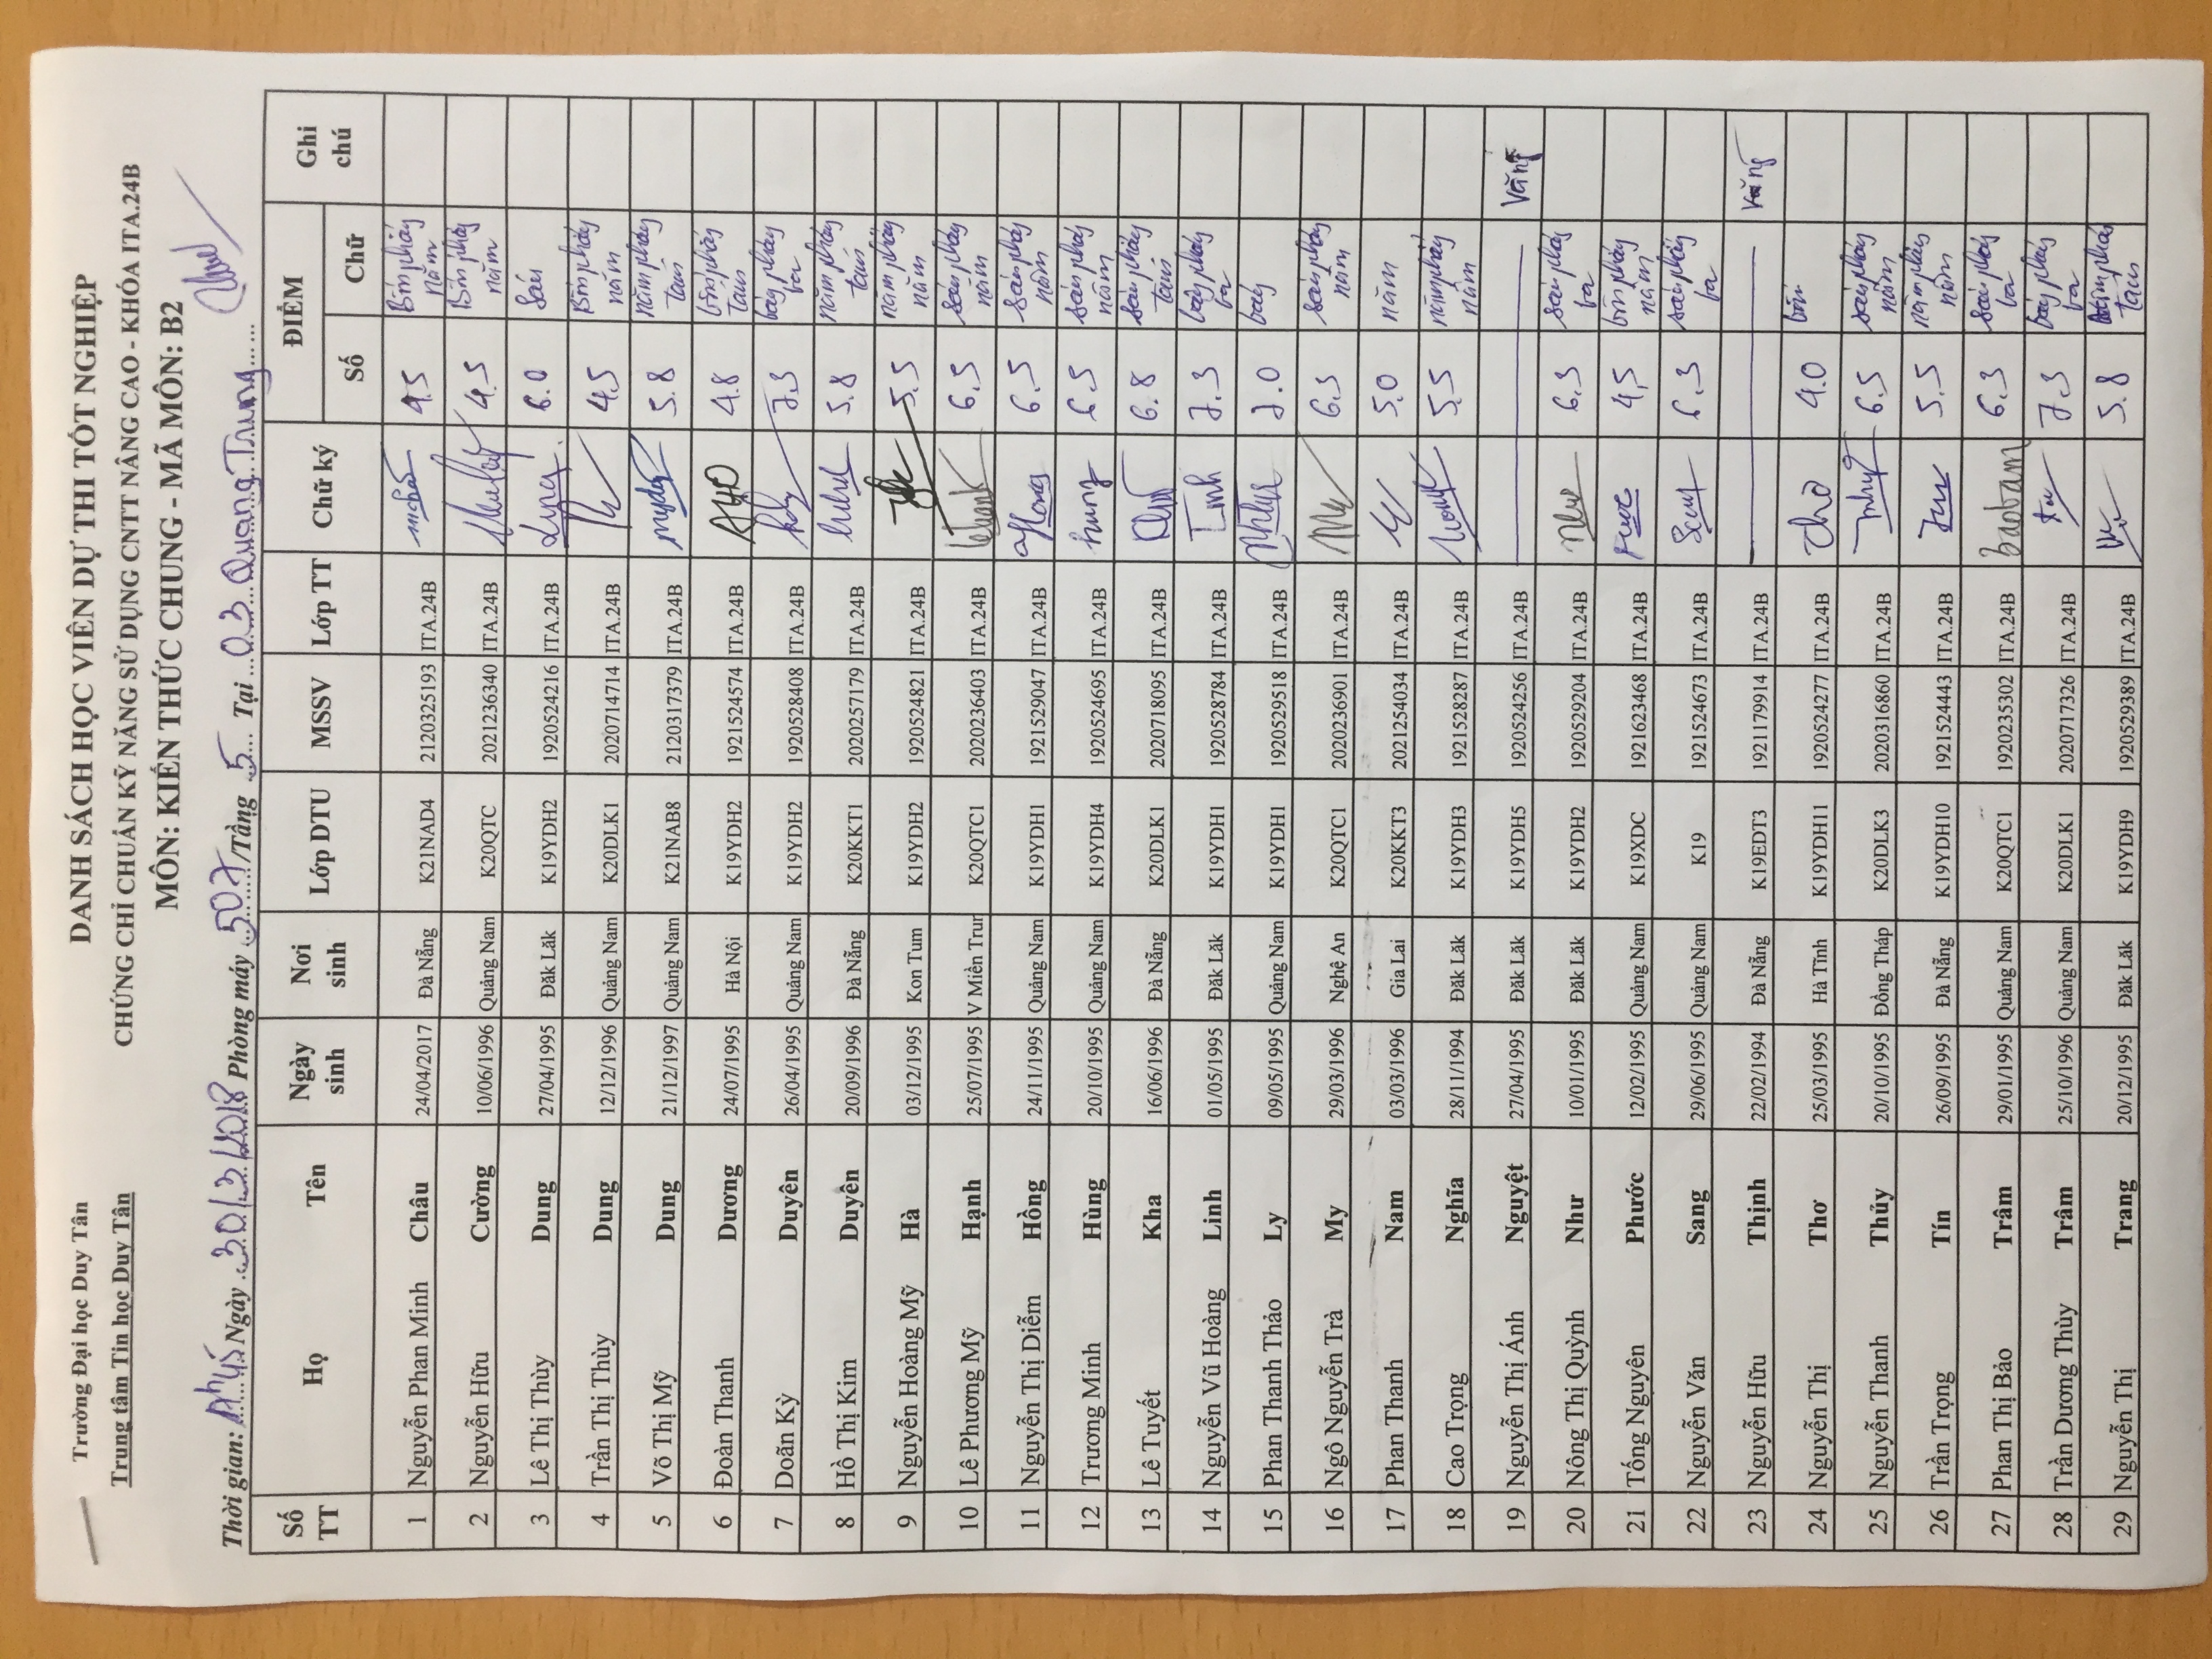 Trường Đại học Duy Tân
Trung tâm Tin học Duy Tân
DANH SÁCH HỌC VIÊN DỰ THI TỐT NGHIỆP
CHỨNG CHỈ CHUẨN KỸ NĂNG SỬ DỤNG CNTT NÂNG CAO - KHÓA ITA.24B
MÔN: KIẾN THỨC CHUNG - MÃ MÔN: B2
Thời gian: Ngày 30/3/2018 Phòng máy 507/Tầng 5 Tại 03 Quang Trung
Số TT Họ Tên Ngày sinh Nơi sinh Lớp DTU MSSV Lớp TT Chữ ký ĐIỂM Số Chữ Ghi chú
1 Nguyễn Phan Minh Châu 24/04/2017 Đà Nẵng K21NAD4 2120325193 ITA.24B 4.5 Bốn phẩy năm
2 Nguyễn Hữu Cường 10/06/1996 Quảng Nam K20QTC 2021236340 ITA.24B 4.5 Bốn phẩy năm
3 Lê Thị Thùy Dung 27/04/1995 Đăk Lăk K19YDH2 1920524216 ITA.24B Dung 6.0 Sáu
4 Trần Thị Thùy Dung 12/12/1996 Quảng Nam K20DLK1 2020714714 ITA.24B 4.5 Bốn phẩy năm
5 Võ Thị Mỹ Dung 21/12/1997 Quảng Nam K21NAB8 2120317379 ITA.24B 5.8 năm phẩy tám
6 Đoàn Thanh Dương 24/07/1995 Hà Nội K19YDH2 1921524574 ITA.24B 4.8 bốn phẩy tám
7 Doãn Kỳ Duyên 26/04/1995 Quảng Nam K19YDH2 1920528408 ITA.24B 7.3 bảy phẩy ba
8 Hồ Thị Kim Duyên 20/09/1996 Đà Nẵng K20KKT1 2020257179 ITA.24B 5.8 năm phẩy tám
9 Nguyễn Hoàng Mỹ Hà 03/12/1995 Kon Tum K19YDH2 1920524821 ITA.24B 5.5 năm phẩy năm
10 Lê Phương Mỹ Hạnh 25/07/1995 V Miền Trun K20QTC1 2020236403 ITA.24B 6.5 sáu phẩy năm
11 Nguyễn Thị Diễm Hồng 24/11/1995 Quảng Nam K19YDH1 1921529047 ITA.24B 6.5 sáu phẩy năm
12 Trương Minh Hùng 20/10/1995 Quảng Nam K19YDH4 1920524695 ITA.24B hung 6.5 sáu phẩy năm
13 Lê Tuyết Kha 16/06/1996 Đà Nẵng K20DLK1 2020718095 ITA.24B 6.8 sáu phẩy tám
14 Nguyễn Vũ Hoàng Linh 01/05/1995 Đăk Lăk K19YDH1 1920528784 ITA.24B Linh 7.3 bảy phẩy ba
15 Phan Thanh Thảo Ly 09/05/1995 Quảng Nam K19YDH1 1920529518 ITA.24B 7.0 bảy
16 Ngô Nguyễn Trà My 29/03/1996 Nghệ An K20QTC1 2020236901 ITA.24B 6.5 sáu phẩy năm
17 Phan Thanh Nam 03/03/1996 Gia Lai K20KKT3 2021254034 ITA.24B 5.0 năm
18 Cao Trọng Nghĩa 28/11/1994 Đăk Lăk K19YDH3 1921528287 ITA.24B 5.5 năm phẩy năm
19 Nguyễn Thị Ánh Nguyệt 27/04/1995 Đăk Lăk K19YDH5 1920524256 ITA.24B Vắng
20 Nông Thị Quỳnh Như 10/01/1995 Đăk Lăk K19YDH2 1920529204 ITA.24B 6.3 sáu phẩy ba
21 Tống Nguyên Phước 12/02/1995 Quảng Nam K19XDC 1921623468 ITA.24B 4,5 bốn phẩy năm
22 Nguyễn Văn Sang 29/06/1995 Quảng Nam K19 1921524673 ITA.24B 6.3 sáu phẩy ba
23 Nguyễn Hữu Thịnh 22/02/1994 Đà Nẵng K19EDT3 1921179914 ITA.24B Vắng
24 Nguyễn Thị Thơ 25/03/1995 Hà Tĩnh K19YDH11 1920524277 ITA.24B thơ 4.0 bốn
25 Nguyễn Thanh Thủy 20/10/1995 Đồng Tháp K20DLK3 2020316860 ITA.24B 6.5 sáu phẩy năm
26 Trần Trọng Tín 26/09/1995 Đà Nẵng K19YDH10 1921524443 ITA.24B 5.5 năm phẩy năm
27 Phan Thị Bảo Trâm 29/01/1995 Quảng Nam K20QTC1 1920235302 ITA.24B baotram 6.3 sáu phẩy ba
28 Trần Dương Thùy Trâm 25/10/1996 Quảng Nam K20DLK1 2020717326 ITA.24B 7.3 bảy phẩy ba
29 Nguyễn Thị Trang 20/12/1995 Đăk Lăk K19YDH9 1920529389 ITA.24B 5.8 năm phẩy tám